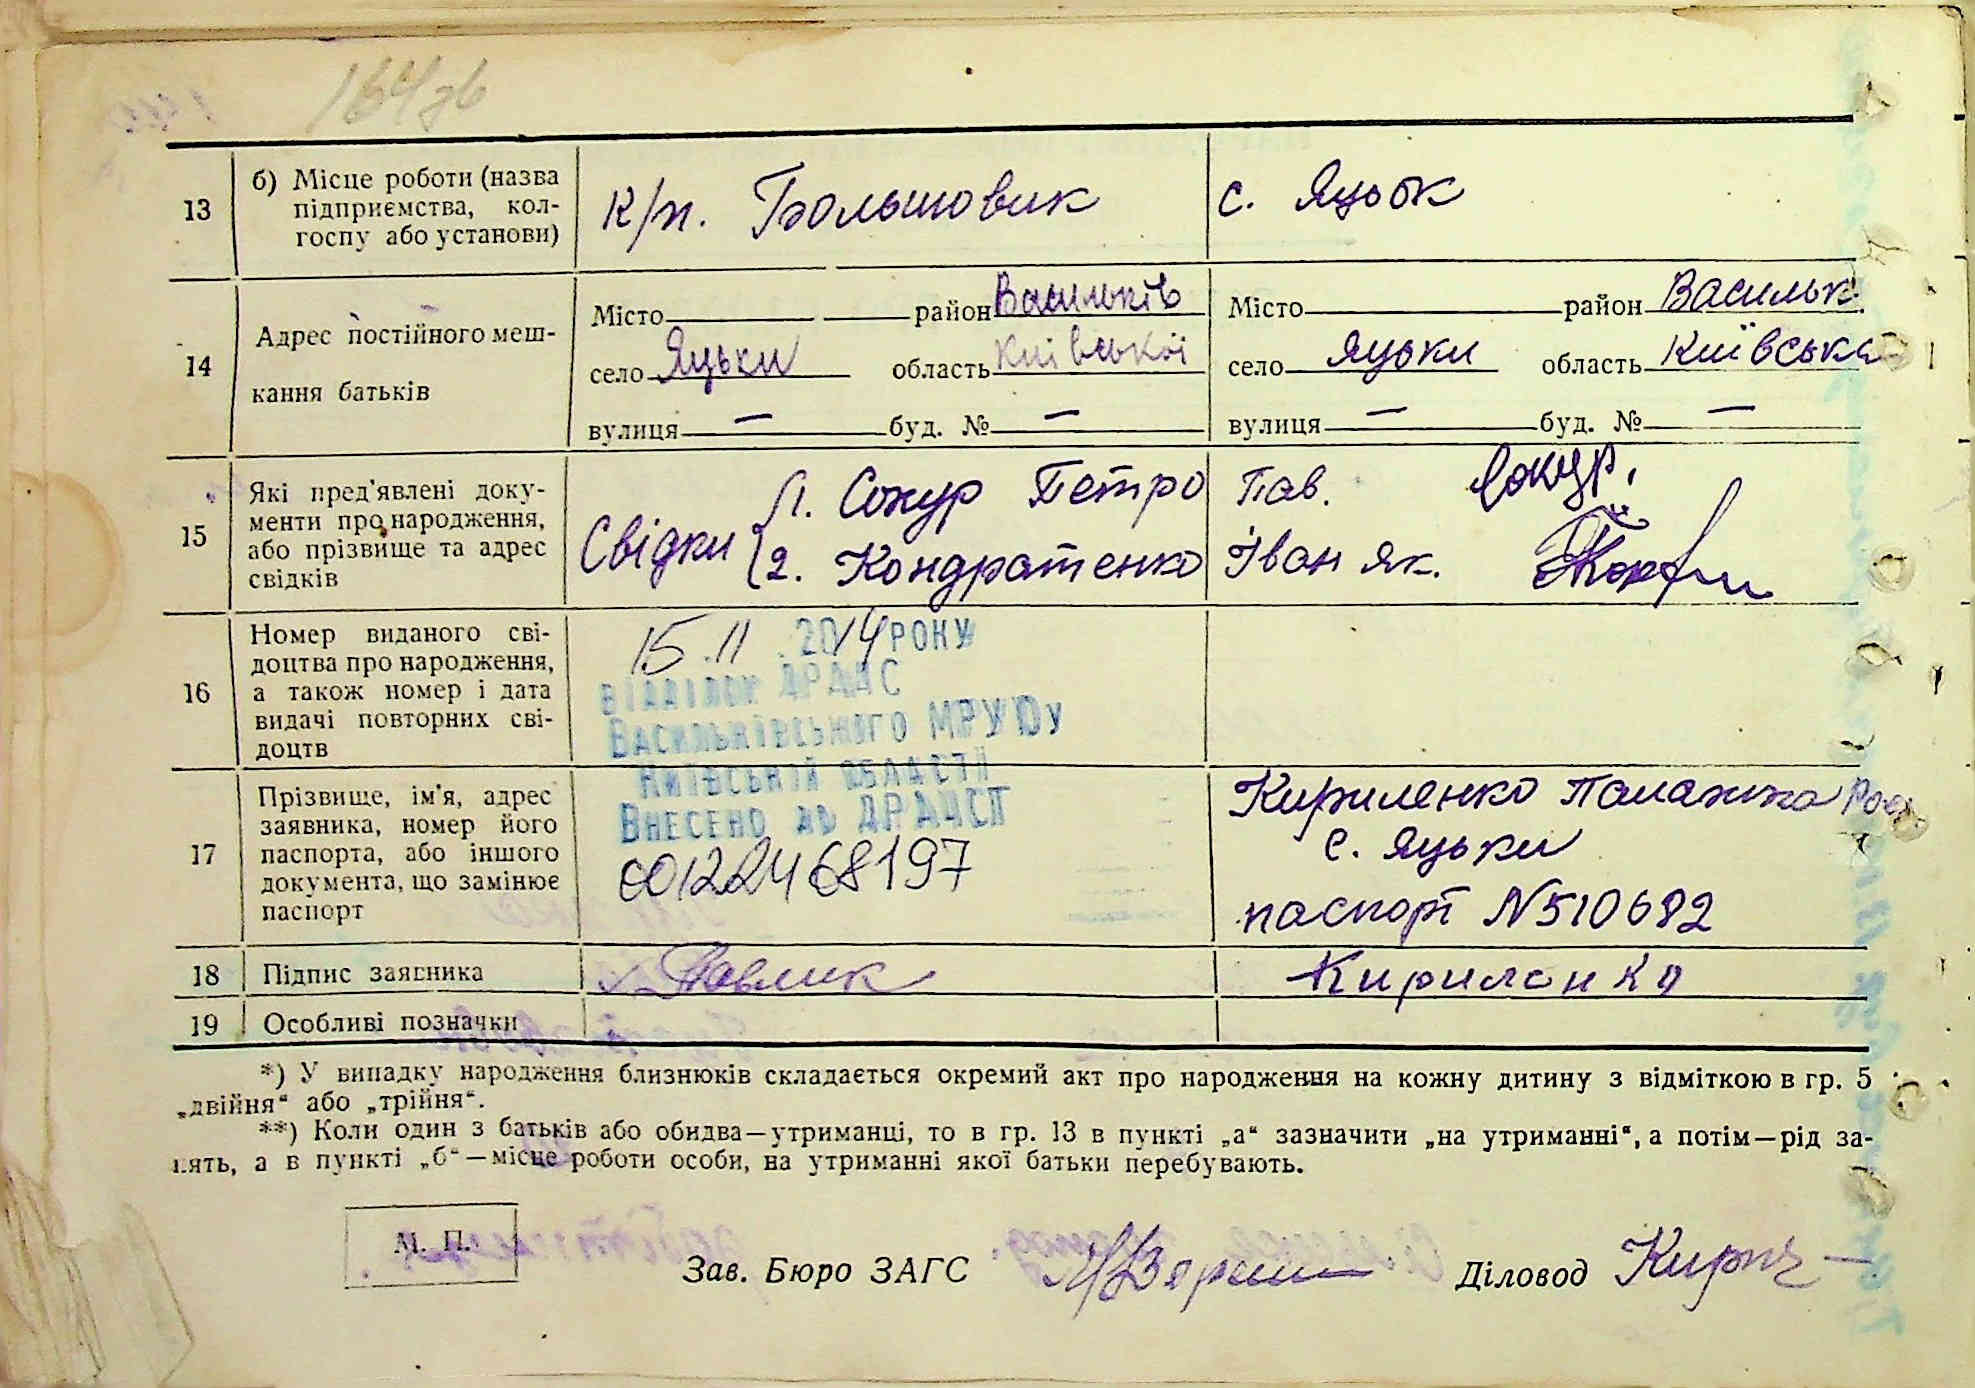 164 зв
13 б) Місце роботи (назва підприємства, колгоспу або установи) к/п. Большовик с. Яцьок
14 Адрес постійного мешкання батьків
Місто район Васильків Місто район Васильк.
село Яцьки область Київської село Яцьки область Київська
вулиця — буд. № — вулиця — буд. № —
15 Які пред'явлені документи про народження, або прізвище та адрес свідків
Свідки { 1. Сокур Петро Пав. Сокур.
2. Кондратенко Іван Як.
16 Номер виданого свідоцтва про народження, а також номер і дата видачі повторних свідоцтв
15.11.2014 РОКУ
ВІДДІЛОМ ДРАЦС
ВАСИЛЬКІВСЬКОГО МРУЮ У
КИЇВСЬКІЙ ОБЛАСТІ
ВНЕСЕНО ДО ДРАЦСГ
00122468197
17 Прізвище, ім'я, адрес заявника, номер його паспорта, або іншого документа, що замінює паспорт
Кириленко Палажка
с. Яцьки
паспорт N 510682
18 Підпис заявника Павлик Кириленко
19 Особливі позначки
*) У випадку народження близнюків складається окремий акт про народження на кожну дитину з відміткою в гр. 5
„двійня“ або „трійня“.
**) Коли один з батьків або обидва—утриманці, то в гр. 13 в пункті „а“ зазначити „на утриманні“, а потім—рід за-
нять, а в пункті „б“—місце роботи особи, на утриманні якої батьки перебувають.
М. П.
Зав. Бюро ЗАГС Діловод